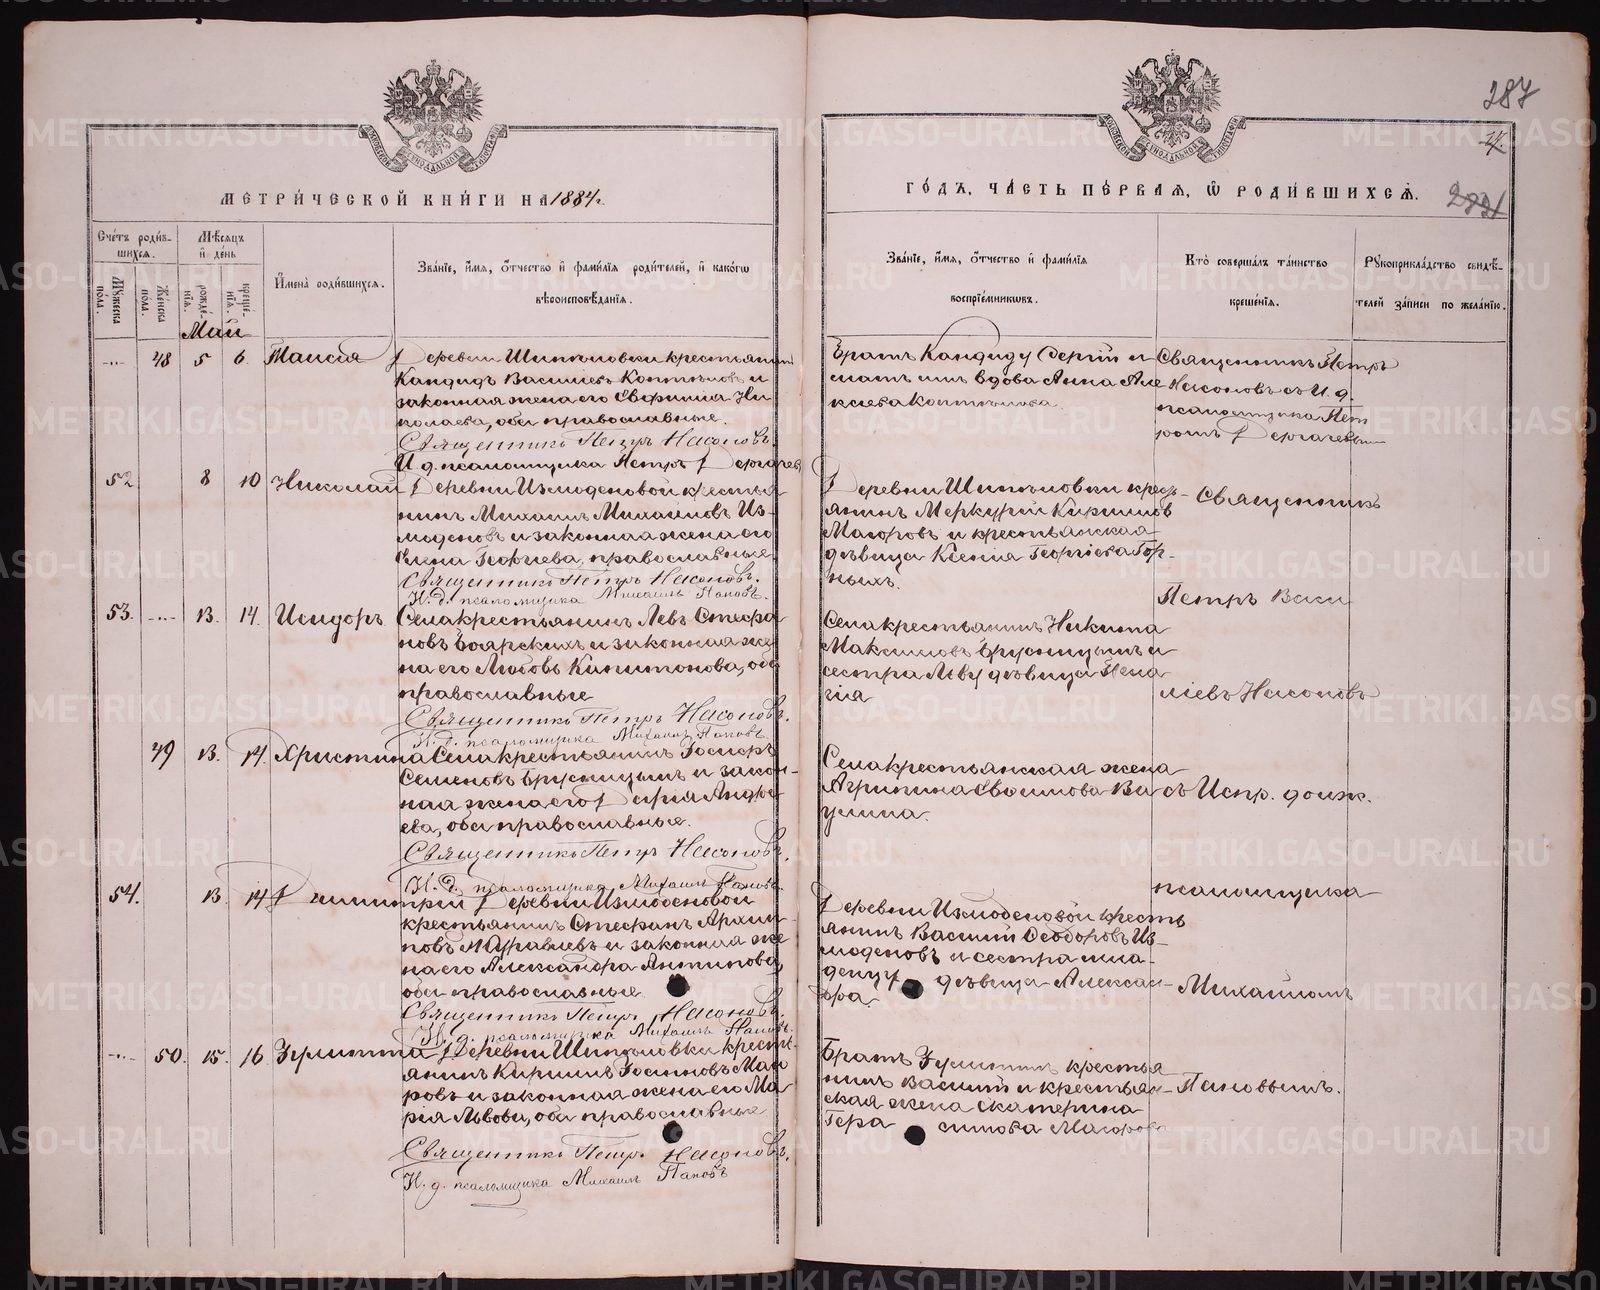 287
МЕТРИ́ЧЕСКОЙ КНИ́ГИ НА 1884 г.
ГО́ДЪ, ЧА́СТЬ ПЕ́РВАЯ, Ѿ РОДИ́ВШИХСѦ.
Сче́тъ роди́в-
шихся.
Му́жеска по́ла.
Же́нска по́ла.
Мѣ́сяцъ
и҆ де́нь
рожде́-
нїя.
креще́-
нїя.
И҆мена̀ роди́вшихся.
Зва́нїе, и҆́мя, ѻ҆́тчество и҆ фами́лїя роди́телей, и҆ како́гѡ
вѣроисповѣ́данїя.
Зва́нїе, и҆́мя, ѻ҆́тчество и҆ фами́лїя
воспрїе́мниковъ.
Кто̀ соверша́лъ та́инство
креще́нїя.
Рꙋкоприкла́дство свидѣ́-
телей за́писи по жела́нїю.
Май
48 5 6. Таисия
Деревни Шипѣловки крестьянинъ
Кандидъ Васильевъ Коптѣловъ и
законная жена его Евфимия Ни
колаева, оба православные.
Священникъ Петръ Насоновъ.
И. д. псаломщика Петръ Дергачевъ
Братъ Кандиду Сергій и
мать ихъ вдова Анна Але
ксѣева Коптѣлова.
Священникъ Петръ
Насоновъ съ И. д.
псаломщика Пет
ромъ Дергачевымъ
52. 8 10 Николай
Деревни Измоденовой крестья
нинъ Михаилъ Михаиловъ Из-
моденовъ и законная жена его
Елена Георгиева, православные.
Священникъ Петръ Насоновъ.
И. д. псаломщика Михаилъ Поповъ.
Деревни Шипѣловки крест-
янинъ Меркурій Кириловъ
Маюровъ и крестьянская
дѣвица Ксения Георгіева Гор-
ныхъ.
Священникъ
Петръ Васи
53. 13. 14. Исидоръ
Села крестьянинъ Левъ Стефа
новъ Боярскихъ и законная же
на его Любовь Капитонова, оба
православные
Священникъ Петръ Насоновъ.
И. д. псаломщика Михаилъ Поповъ
Села крестьянинъ Никита
Максимовъ Брусницынъ и
сестра Льву дѣвица Пела
гія
ліевъ Насоновъ
49 13. 14. Христина
Села крестьянинъ Іосифъ
Семеновъ Брусницынъ и закон-
ная жена его Дарія Андре
ева, оба православные.
Священникъ Петръ Насоновъ.
И. д. псаломщика Михаилъ Поповъ.
Села крестьянская жена
Агрипина Евоимова Ва
кулина.
съ Испр. долж.
псаломщика
54. 13 14 Димитрій
Деревни Измоденовой
крестьянинъ Стефанъ Архи
повъ Муравьевъ и законная же
на его Александра Антипова,
оба православные.
Священникъ Петръ Насоновъ.
И. д. псаломщика Михаилъ Поповъ.
Деревни Измоденовой кресть
янинъ Василій Ѳеодоровъ Из-
моденовъ и сестра мла-
денцу дѣвица Алексан-
дра
Михаиломъ
50. 15. 16. Іулитта
Деревни Шипѣловки кресть-
янинъ Кирилъ Іосифовъ Маю
ровъ и законная жена его Ма-
рія Львова, оба православные
Священникъ Петръ Насоновъ.
И. д. псаломщика Михаилъ Поповъ
Братъ Іулиттѣ крестья
нинъ Василій и крестьян-
ская жена Екатерина
Гера симова Маюрова
Поповымъ.
METRIKI.GASO-URAL.RU